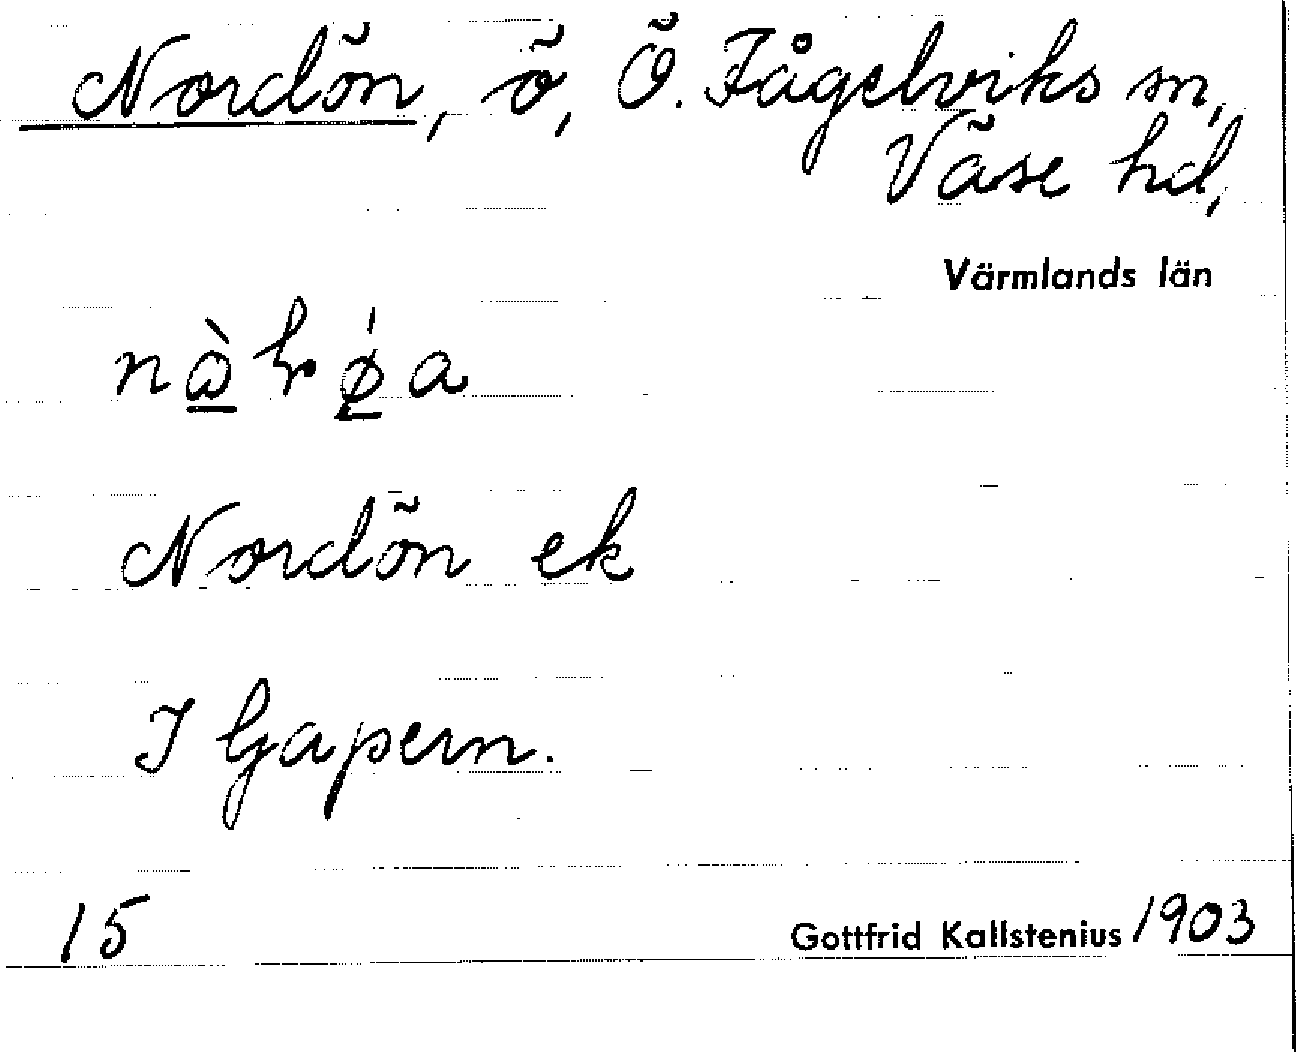 Nordön, ö, Ö. Fågelviks sn,
Väse hd,
Värmlands län
Nordön ek
I Gapern.
15 Gottfrid Kallstenius 1903